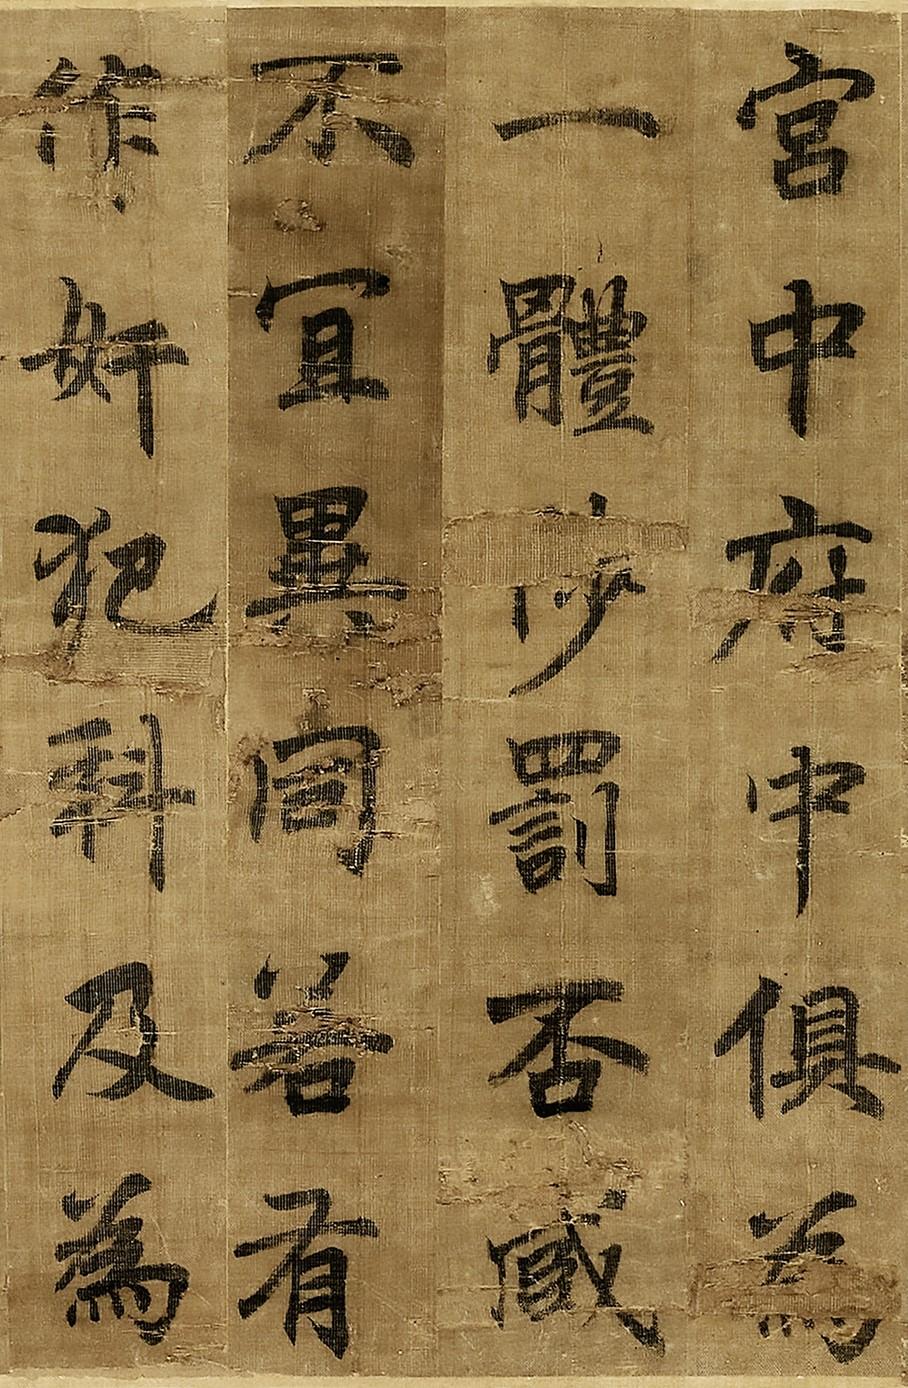 宮中府中俱為
一體陟罰否臧
不冝異同若有
作奸犯科及為